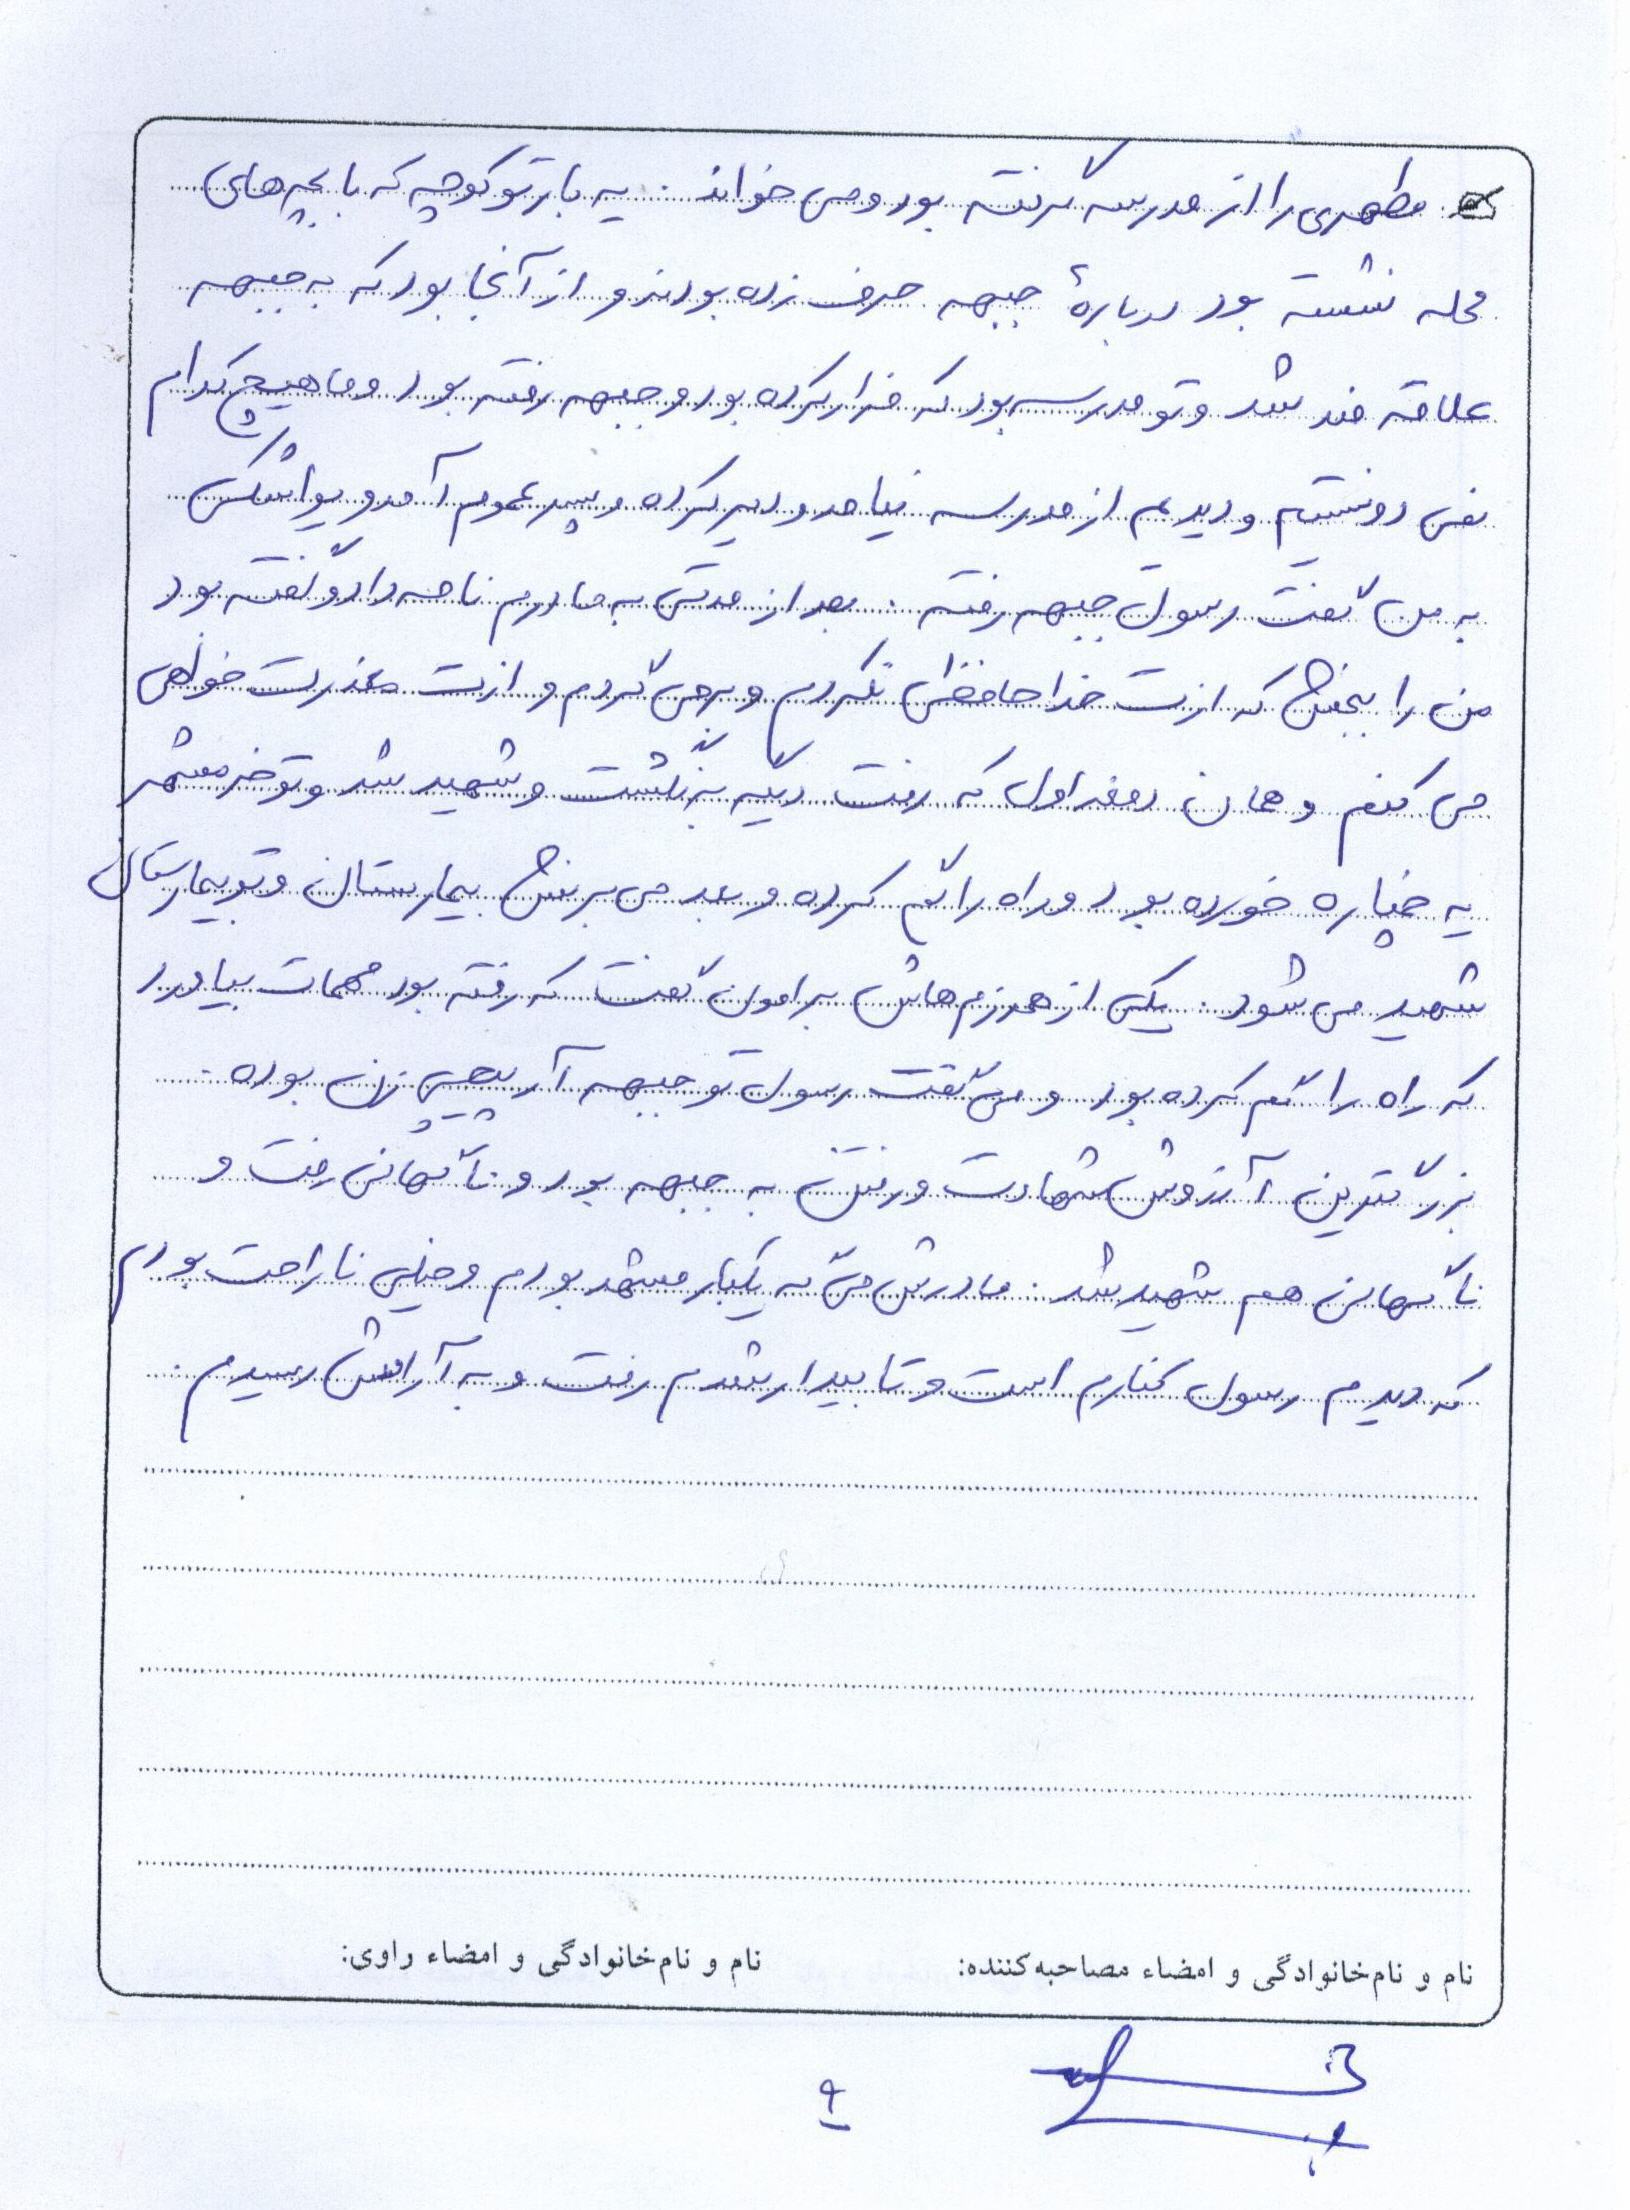 مطهری را از مدرسه گرفته بود و می خواند . یه بار تو کوچه که با بچه های
محله نشسته بود درباره‌ٔ جبهه حرف زده بودند و از آنجا بود که به جبهه
علاقه مند شد و تو مدرسه بود که فرار کرده بود و جبهه رفته بود و ما هیچ کدام
نمی دونستیم و دیدیم از مدرسه نیامد و دیر کرده و پسر عموم آمد و یواشکی
به من گفت رسول جبهه رفته . بعد از مدتی به مادرم نامه داد و گفته بود
من را ببخش که ازت خداحافظی نکردم و برمی گردم و ازت معذرت خواهی
می کنم و همان دفعه اول که رفت دیگه برنگشت و شهید شد و تو خرمشهر
یه خمپاره خورده بود و راه را گم کرده و بعد می برنش بیمارستان و تو بیمارستان
شهید می شود . یکی از همرزم هاش برامون گفت که رفته بود مهمات بیاورد
که راه را گم کرده بود و می گفت رسول تو جبهه آرپیچی زن بوده .
بزرگترین آرزوش شهادت و رفتن به جبهه بود و ناگهانی رفت و
ناگهانی هم شهید شد . مادرش می گه یکبار مشهد بودم و خیلی ناراحت بودم
که دیدم رسول کنارم است و تا بیدار شدم رفت و به آرامش رسیدم .
نام و نام‌خانوادگی و امضاء مصاحبه‌کننده: نام و نام‌خانوادگی و امضاء راوی:
۹